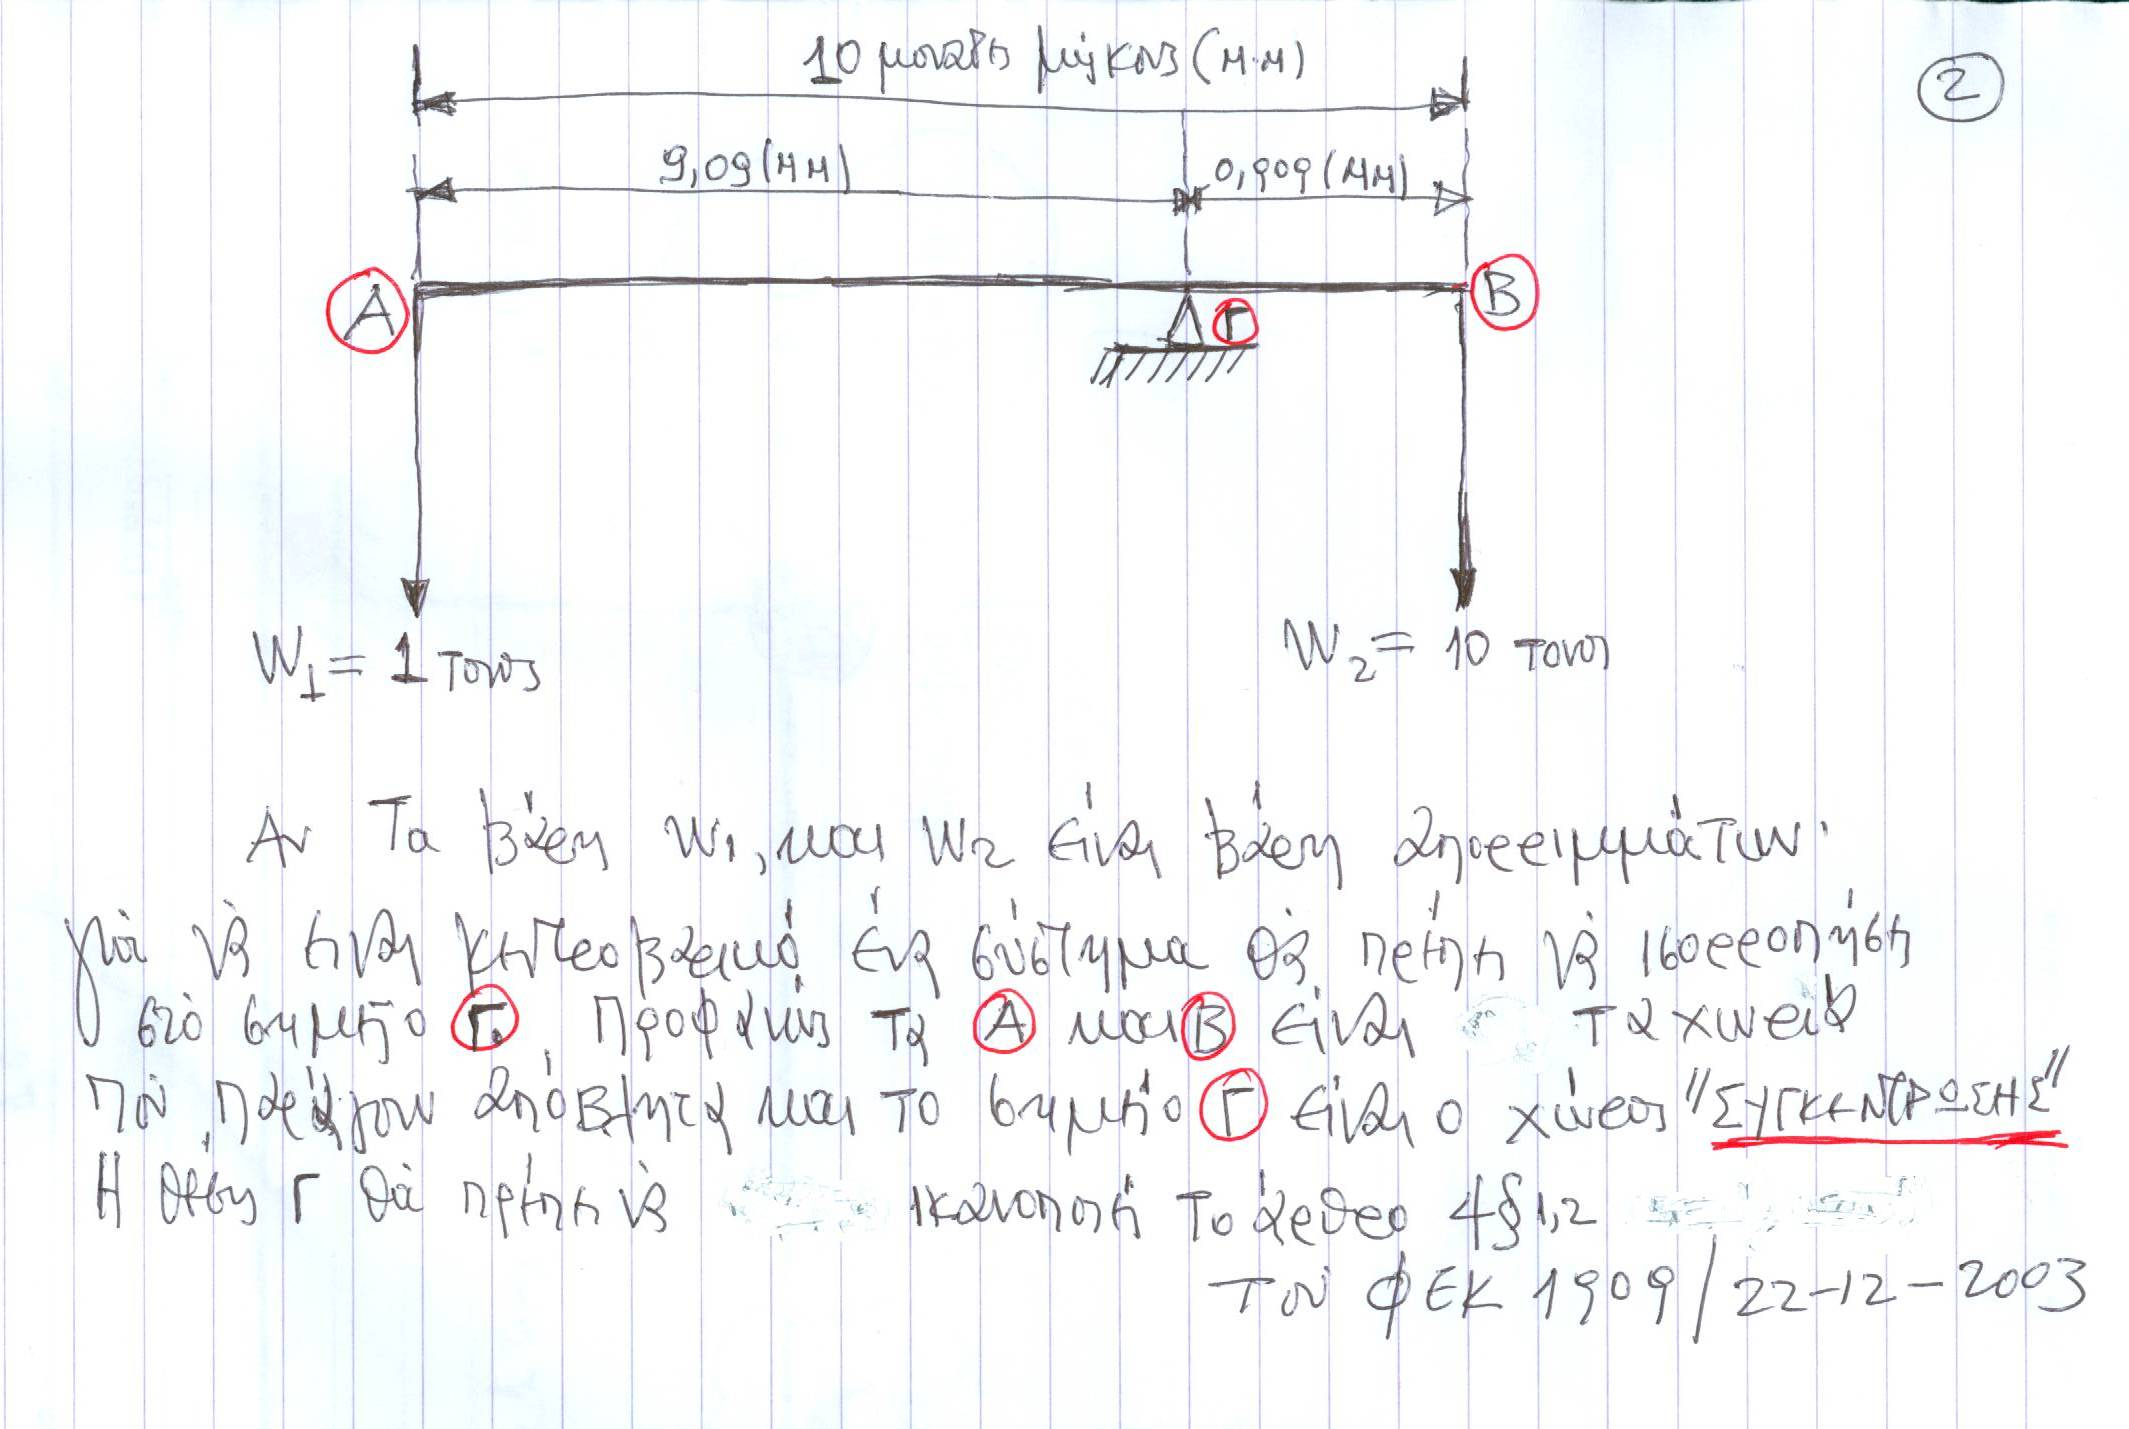 10 μοναδες μήκους (μ.μ)
2
9,09 (μμ)
0,909 (μμ)
Α
Γ
Β
W1 = 1 τονος
W2 = 10 τονοι
Αν Τα βάρη W1, και W2 είναι βάρη απορριμμάτων.
για να είναι κεντροβαρικό ένα σύστημα θα πρέπει να ισορροπήσει
στο σημείο Γ. Προφανώς τα Α και Β είναι τα χωριά
που παράγουν απόβλητα και το σημείο Γ είναι ο χώρος "ΣΥΓΚΕΝΤΡΩΣΗΣ"
Η θέση Γ θα πρέπει να ικανοποιεί το άρθρο 4§1,2
του ΦΕΚ 1909/22-12-2003